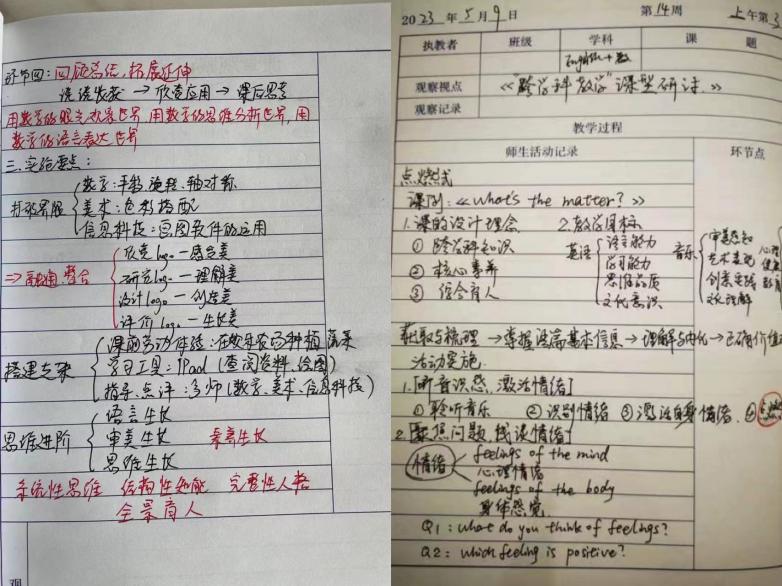 环节四:回顾总结,拓展延伸
谈谈收获 → 欣赏应用 → 课后思考
用数学的眼光观察世界,用数学的思维分析世界,用
数学的语言表达世界
三.实施要点:
打破界限
数学:平移、旋转、轴对称
美术:色彩搭配
信息科技:画图软件的应用
⇒ 融通、整合
欣赏logo — 感受美
研究logo — 理解美
设计logo — 创造美
评价logo — 生长美
搭建支架
课前劳动体验:在欢乐农场种植蔬菜
学习工具:IPad(查阅资料、绘图)
指导、点评:多师(数学、美术、信息科技)
思维进阶
语言生长
审美生长
思维生长
素养生长
系统性思维 结构性知能 完整性人格
全景育人
观
2023年5月9日 第14周 上午第3
执教者 班级 学科 课 题
English+数
观察视点 《"跨学科教学"课型研讨》
观察记录
教学过程
师生活动记录 环节点
点燃式
课例:《what's the matter?》
1.课的设计理念 2.教学目标
① 跨学科知识
② 核心素养
③ 综合育人
英语
语言能力
学习能力
思维品质
文化意识
音乐
审美感知
艺术表现
创意实践
文化理解
心理
健康
获取与梳理 → 掌握语篇基本信息 → 理解与内化 → 正确价值
活动实施
1.听音识感,激活情绪
①聆听音乐 ②识别情绪 ③激活自身情绪 ④点燃
2.聚焦问题,浅谈情绪
情绪
feelings of the mind
心理情绪
feelings of the body
身体感觉
Q1: what do you think of feelings?
Q2: which feeling is positive?